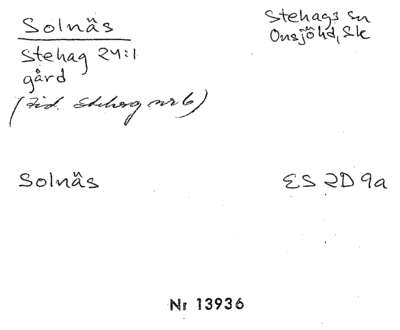 Solnäs
Stehags sn
Onsjö hd, Sk
Stehag 24:1
gård
(Tid. Stehag nr 6)
Solnäs
ES 2D 9a
Nr 13936